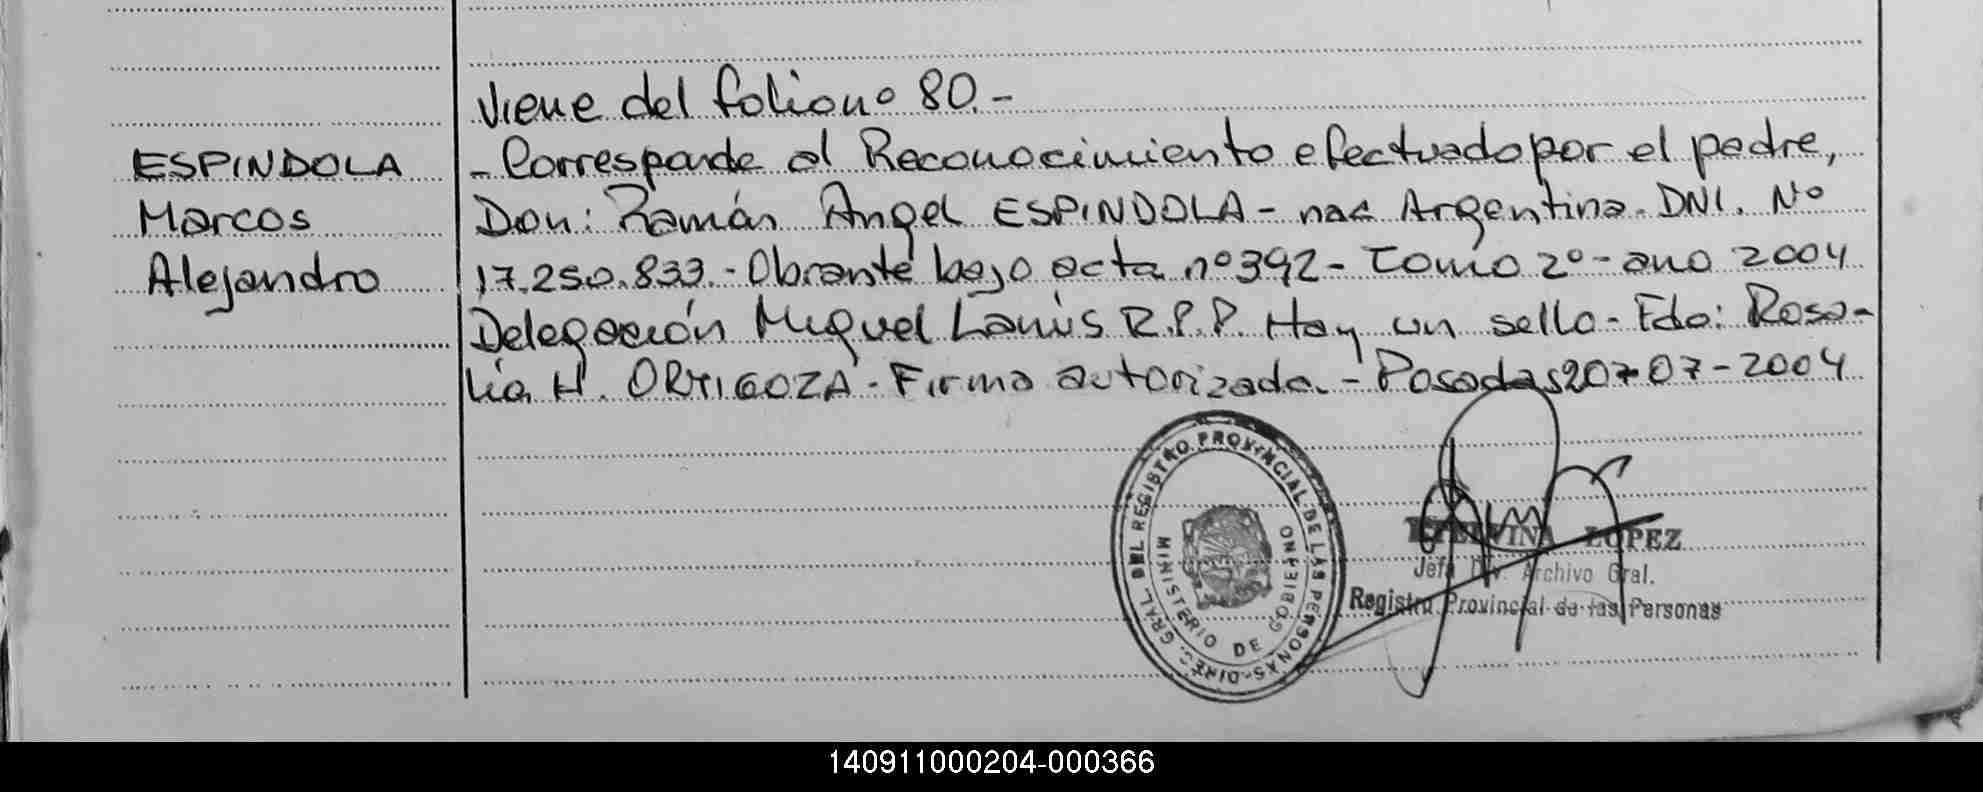 Viene del folio nº 80.-
ESPINDOLA
Marcos
Alejandro
- Corresponde al Reconocimiento efectuado por el padre,
Don: Ramón Angel ESPINDOLA - nac Argentina. DNI. Nº
17.250.833.- Obrante bajo acta nº 392 - Tomo 2º - ano 2004
Delegación Miguel Lanús R.P.P. Hay un sello - Fdo: Rosa-
lia H. ORTIGOZA - Firma autorizada. - Posadas 20-07-2004
DIREC. GRAL. DEL REGISTRO PROVINCIAL DE LAS PERSONAS
MINISTERIO DE GOBIERNO
LOPEZ
Jefa Div. Archivo Gral.
Registro Provincial de las Personas
140911000204-000366